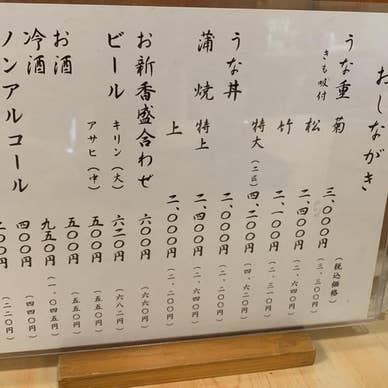 おしながき
（税込価格）
うな重 きも吸付 菊 三、〇〇〇円（三、三〇〇円）
松 二、四〇〇円（二、六四〇円）
竹 二、一〇〇円（二、三一〇円）
特大（二匹） 四、二〇〇円（四、六二〇円）
うな丼 二、〇〇〇円（二、二〇〇円）
蒲焼 特上 二、四〇〇円（二、六四〇円）
上 二、〇〇〇円（二、二〇〇円）
お新香盛合わせ 六〇〇円（六六〇円）
ビール キリン（大） 六二〇円（六八二円）
アサヒ（中） 五〇〇円（五五〇円）
お酒 五〇〇円（五五〇円）
冷酒 九五〇円（一、〇四五円）
ノンアルコール 四〇〇円（四四〇円）
二〇〇円（二二〇円）